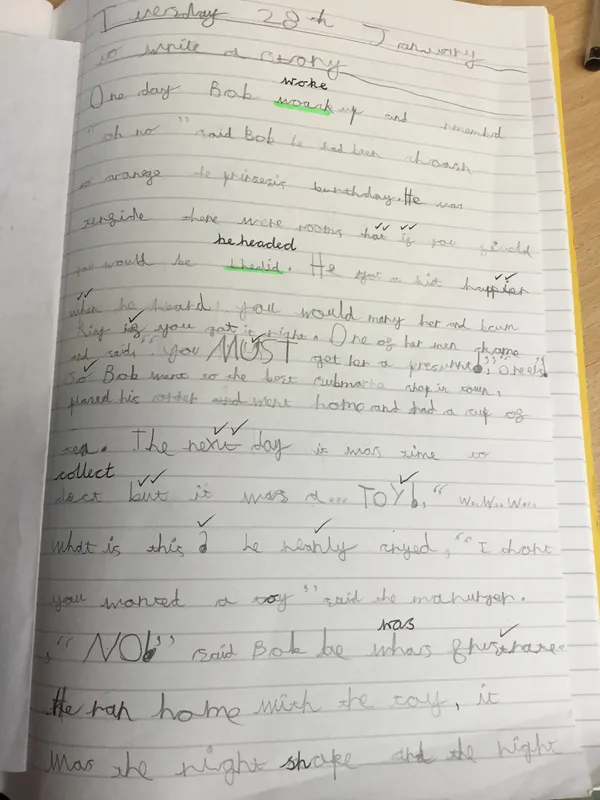 Tuesday 28th January
to write a story
woke
One day Bob woark up and rememberd
"oh no" said Bob he had been choash
to arange the princesis burthday. He was
there were rooms that if you
beheaded
you would be bhedid. He got a bit happier
when he heard, you would marry her and bcum
King if you got it right. One of her men came
and said "you MUST get her a
So Bob went to the best submarine shop in town,
placed his order and went home and had a cup of
tea. The next day it was time to
collect
clect but it was a... TOY!, "W.. W.. W...
what is this? he nearly cryed, "I thort
you wanted a toy" said the manurger.
, "NO!" said Bob he
was
whars
He ran home with the toy, it
was the right shape and the right